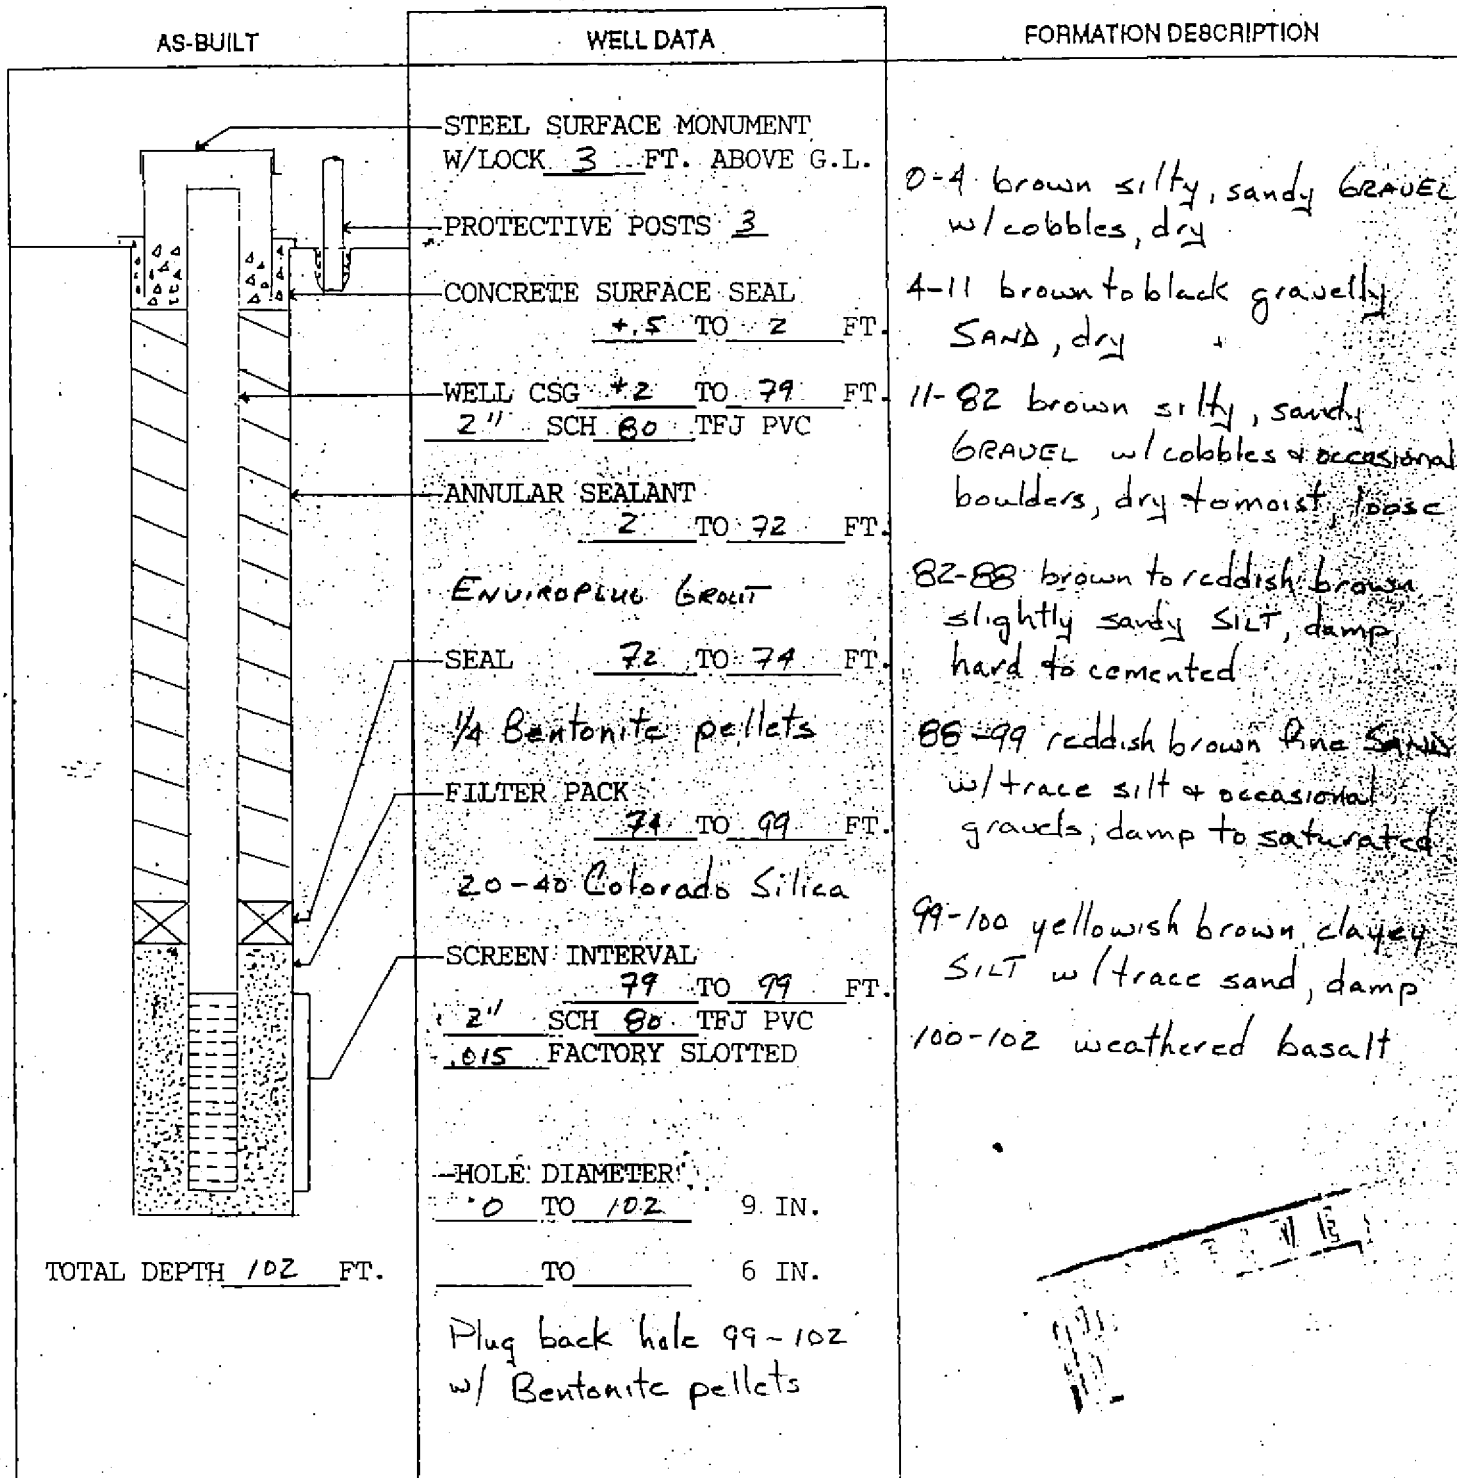 AS-BUILT
WELL DATA
FORMATION DESCRIPTION
STEEL SURFACE MONUMENT
W/LOCK 3 FT. ABOVE G.L.
PROTECTIVE POSTS 3
CONCRETE SURFACE SEAL
+.5 TO 2 FT.
WELL CSG +2 TO 79 FT.
2" SCH 80 TFJ PVC
ANNULAR SEALANT
2 TO 72 FT.
ENVIROPLUG GROUT
SEAL 72 TO 74 FT.
1/4 Bentonite pellets
FILTER PACK
74 TO 99 FT.
20-40 Colorado Silica
SCREEN INTERVAL
79 TO 99 FT.
2" SCH 80 TFJ PVC
.015 FACTORY SLOTTED
HOLE DIAMETER
0 TO 102 9 IN.
TO 6 IN.
Plug back hole 99-102
w/ Bentonite pellets
TOTAL DEPTH 102 FT.
0-4 brown silty, sandy GRAVEL
w/cobbles, dry
4-11 brown to black gravelly
SAND, dry
11-82 brown silty, sandy
GRAVEL w/cobbles & occasional
boulders, dry to moist, loose
82-88 brown to reddish brown
slightly sandy SILT, damp,
hard to cemented
88-99 reddish brown fine SAND
w/trace silt & occasional
gravels, damp to saturated
99-100 yellowish brown clayey
SILT w/trace sand, damp
100-102 weathered basalt